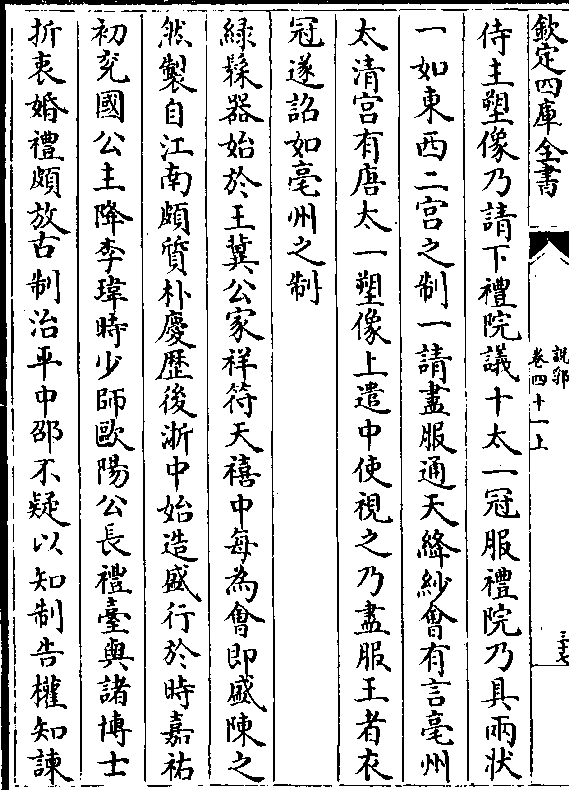 欽定四庫全書
說郛
卷四十一上
三十七
侍主塑像乃請下禮院議十太一冠服禮院乃具兩狀
一如東西二宮之制一請盡服通天絳紗會有言亳州
太清宮有唐太一塑像上遣中使視之乃盡服王者衣
冠遂詔如亳州之制
綠髹器始於王冀公家祥符天禧中每為會即盛陳之
然製自江南頗質朴慶歴後浙中始造盛行於時嘉祐
初兖國公主降李瑋時少師歐陽公長禮臺與諸博士
折衷婚禮頗放古制治平中邵不疑以知制告權知諫